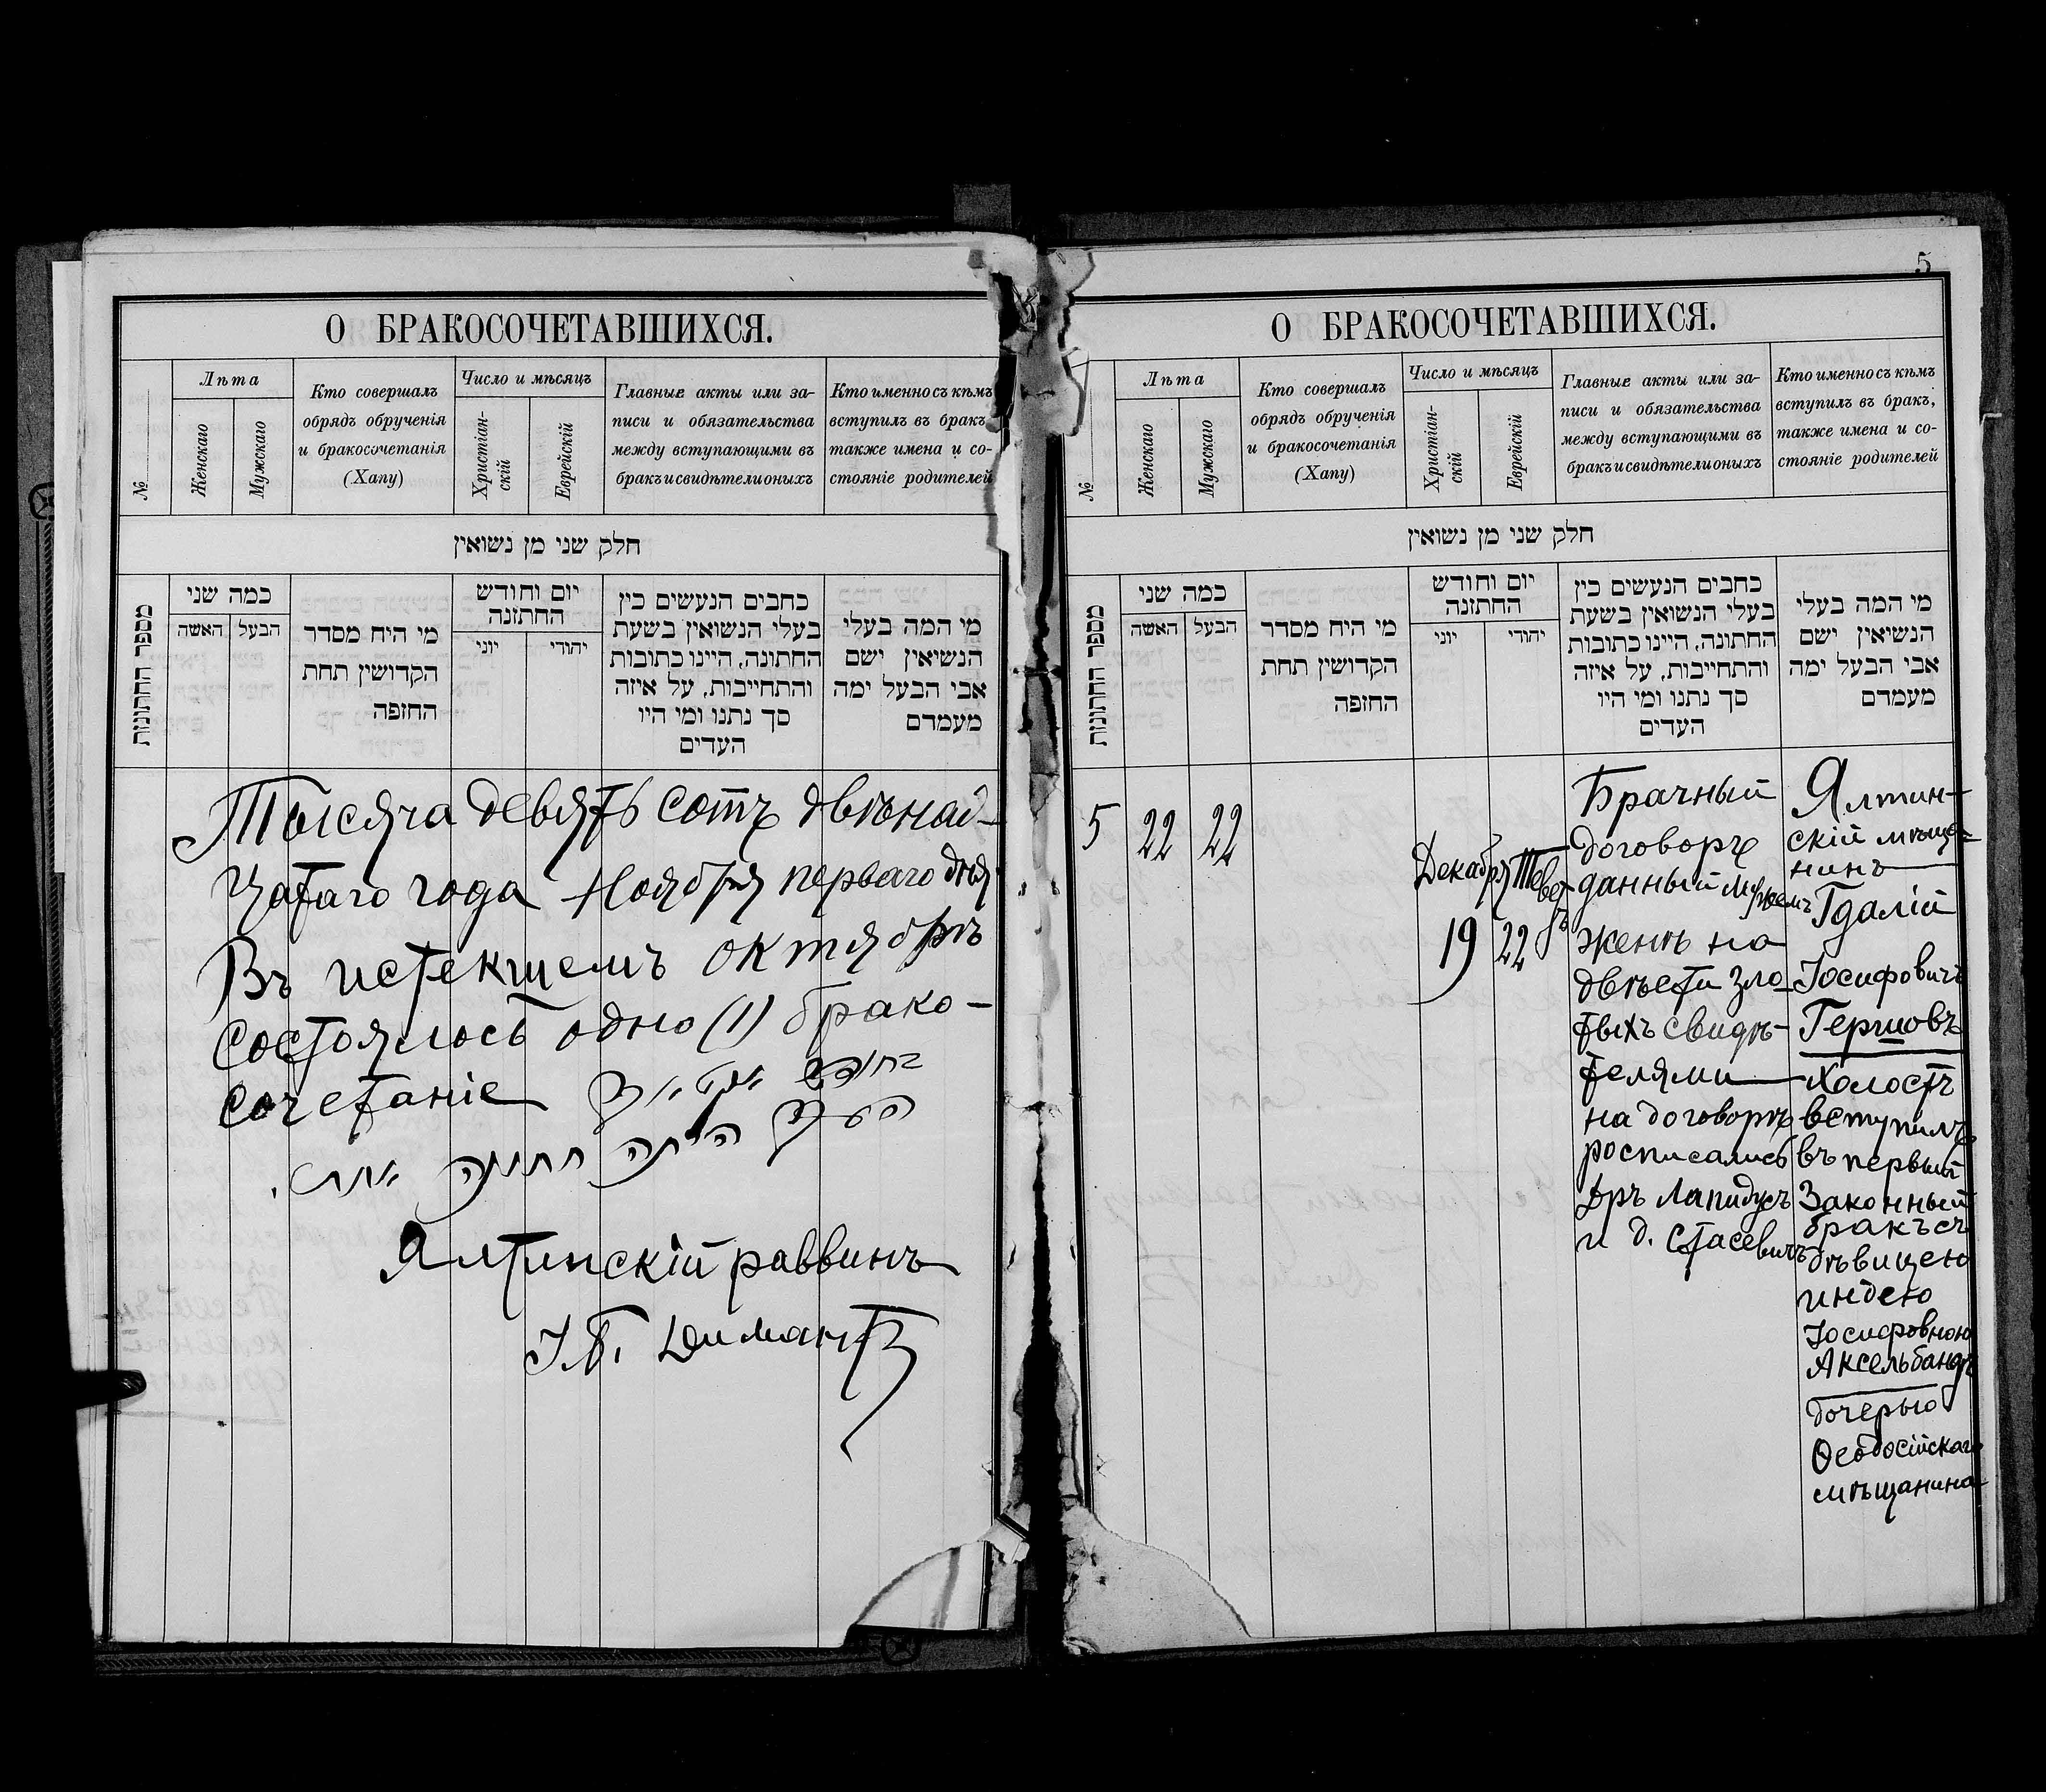 О БРАКОСОЧЕТАВШИХСЯ.
№
Лѣта
Женскаго
Мужскаго
Кто совершалъ
обрядъ обрученія
и бракосочетанія
(Хапу)
Число и мѣсяцъ
Христіан-
скій
Еврейскій
Главные акты или за-
писи и обязательства
между вступающими въ
бракъ и свидѣтели оныхъ
Кто именно съ кѣмъ
вступилъ въ бракъ,
также имена и со-
стояніе родителей
חלק שני מן נשואין
מספר החתונות
כמה שני
האשה
הבעל
מי היח מסדר
הקדושין תחת
החזפה
יום וחודש
החתונה
יוני
יהודי
כחבים הנעשים כין
בעלי הנשואין בשעת
החתונה, היינו כתובות
והתחייבות, על איזה
סך נתנו ומי היו
העדים
מי המה בעלי
הנשיאין ישם
אבי הבעל ימה
מעמדם
Тысяча девять сотъ двѣнад-
цатаго года Ноября перваго дня
Въ истекшемъ октябрѣ
состоялось одно (1) брако-
сочетаніе
היתה חתונה אחת.
Ялтинскій раввинъ
І.Б. Димантъ
5
О БРАКОСОЧЕТАВШИХСЯ.
№
Лѣта
Женскаго
Мужскаго
Кто совершалъ
обрядъ обрученія
и бракосочетанія
(Хапу)
Число и мѣсяцъ
Христіан-
скій
Еврейскій
Главные акты или за-
писи и обязательства
между вступающими въ
бракъ и свидѣтели оныхъ
Кто именно съ кѣмъ
вступилъ въ бракъ,
также имена и со-
стояніе родителей
חלק שני מן נשואין
מספר החתונות
כמה שני
האשה
הבעל
מי היח מסדר
הקדושין תחת
החזפה
יום וחודש
החתונה
יוני
יהודי
כחבים הנעשים כין
בעלי הנשואין בשעת
החתונה, היינו כתובות
והתחייבות, על איזה
סך נתנו ומי היו
העדים
מי המה בעלי
הנשיאין ישם
אבי הבעל ימה
מעמדם
5
22
22
Декабря
19
Тевет
ъ
22
Брачный
договоръ
данный мужемъ
женѣ на
двѣсти зло-
тыхъ свидѣ-
телями
на договорѣ
росписались
Дръ Лапидусъ
и д. Стасевичъ
Ялтин-
скій мѣща-
нинъ
Гдалій
Іосифовичъ
Гершовъ
холостъ
вступилъ
въ первый
законный
бракъ съ
дѣвицею
Индею
Іосифовною
Аксельбандъ
дочерью
Ѳеодосійскаго
мѣщанина